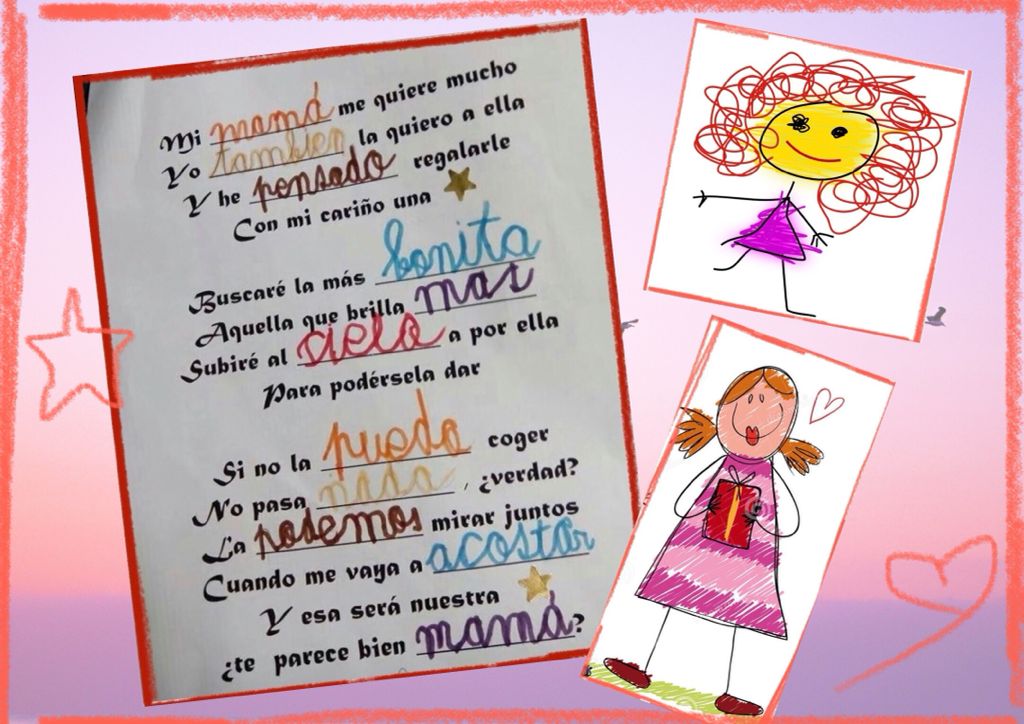 Mi mamá me quiere mucho
Yo tambien la quiero a ella
Y he pensado regalarle
Con mi cariño una
Buscaré la más bonita
Aquella que brilla mas
Subiré al cielo a por ella
Para podérsela dar
Si no la puedo coger
No pasa nada, ¿verdad?
La podemos mirar juntos
Cuando me vaya a acostar
Y esa será nuestra
¿te parece bien mamá?